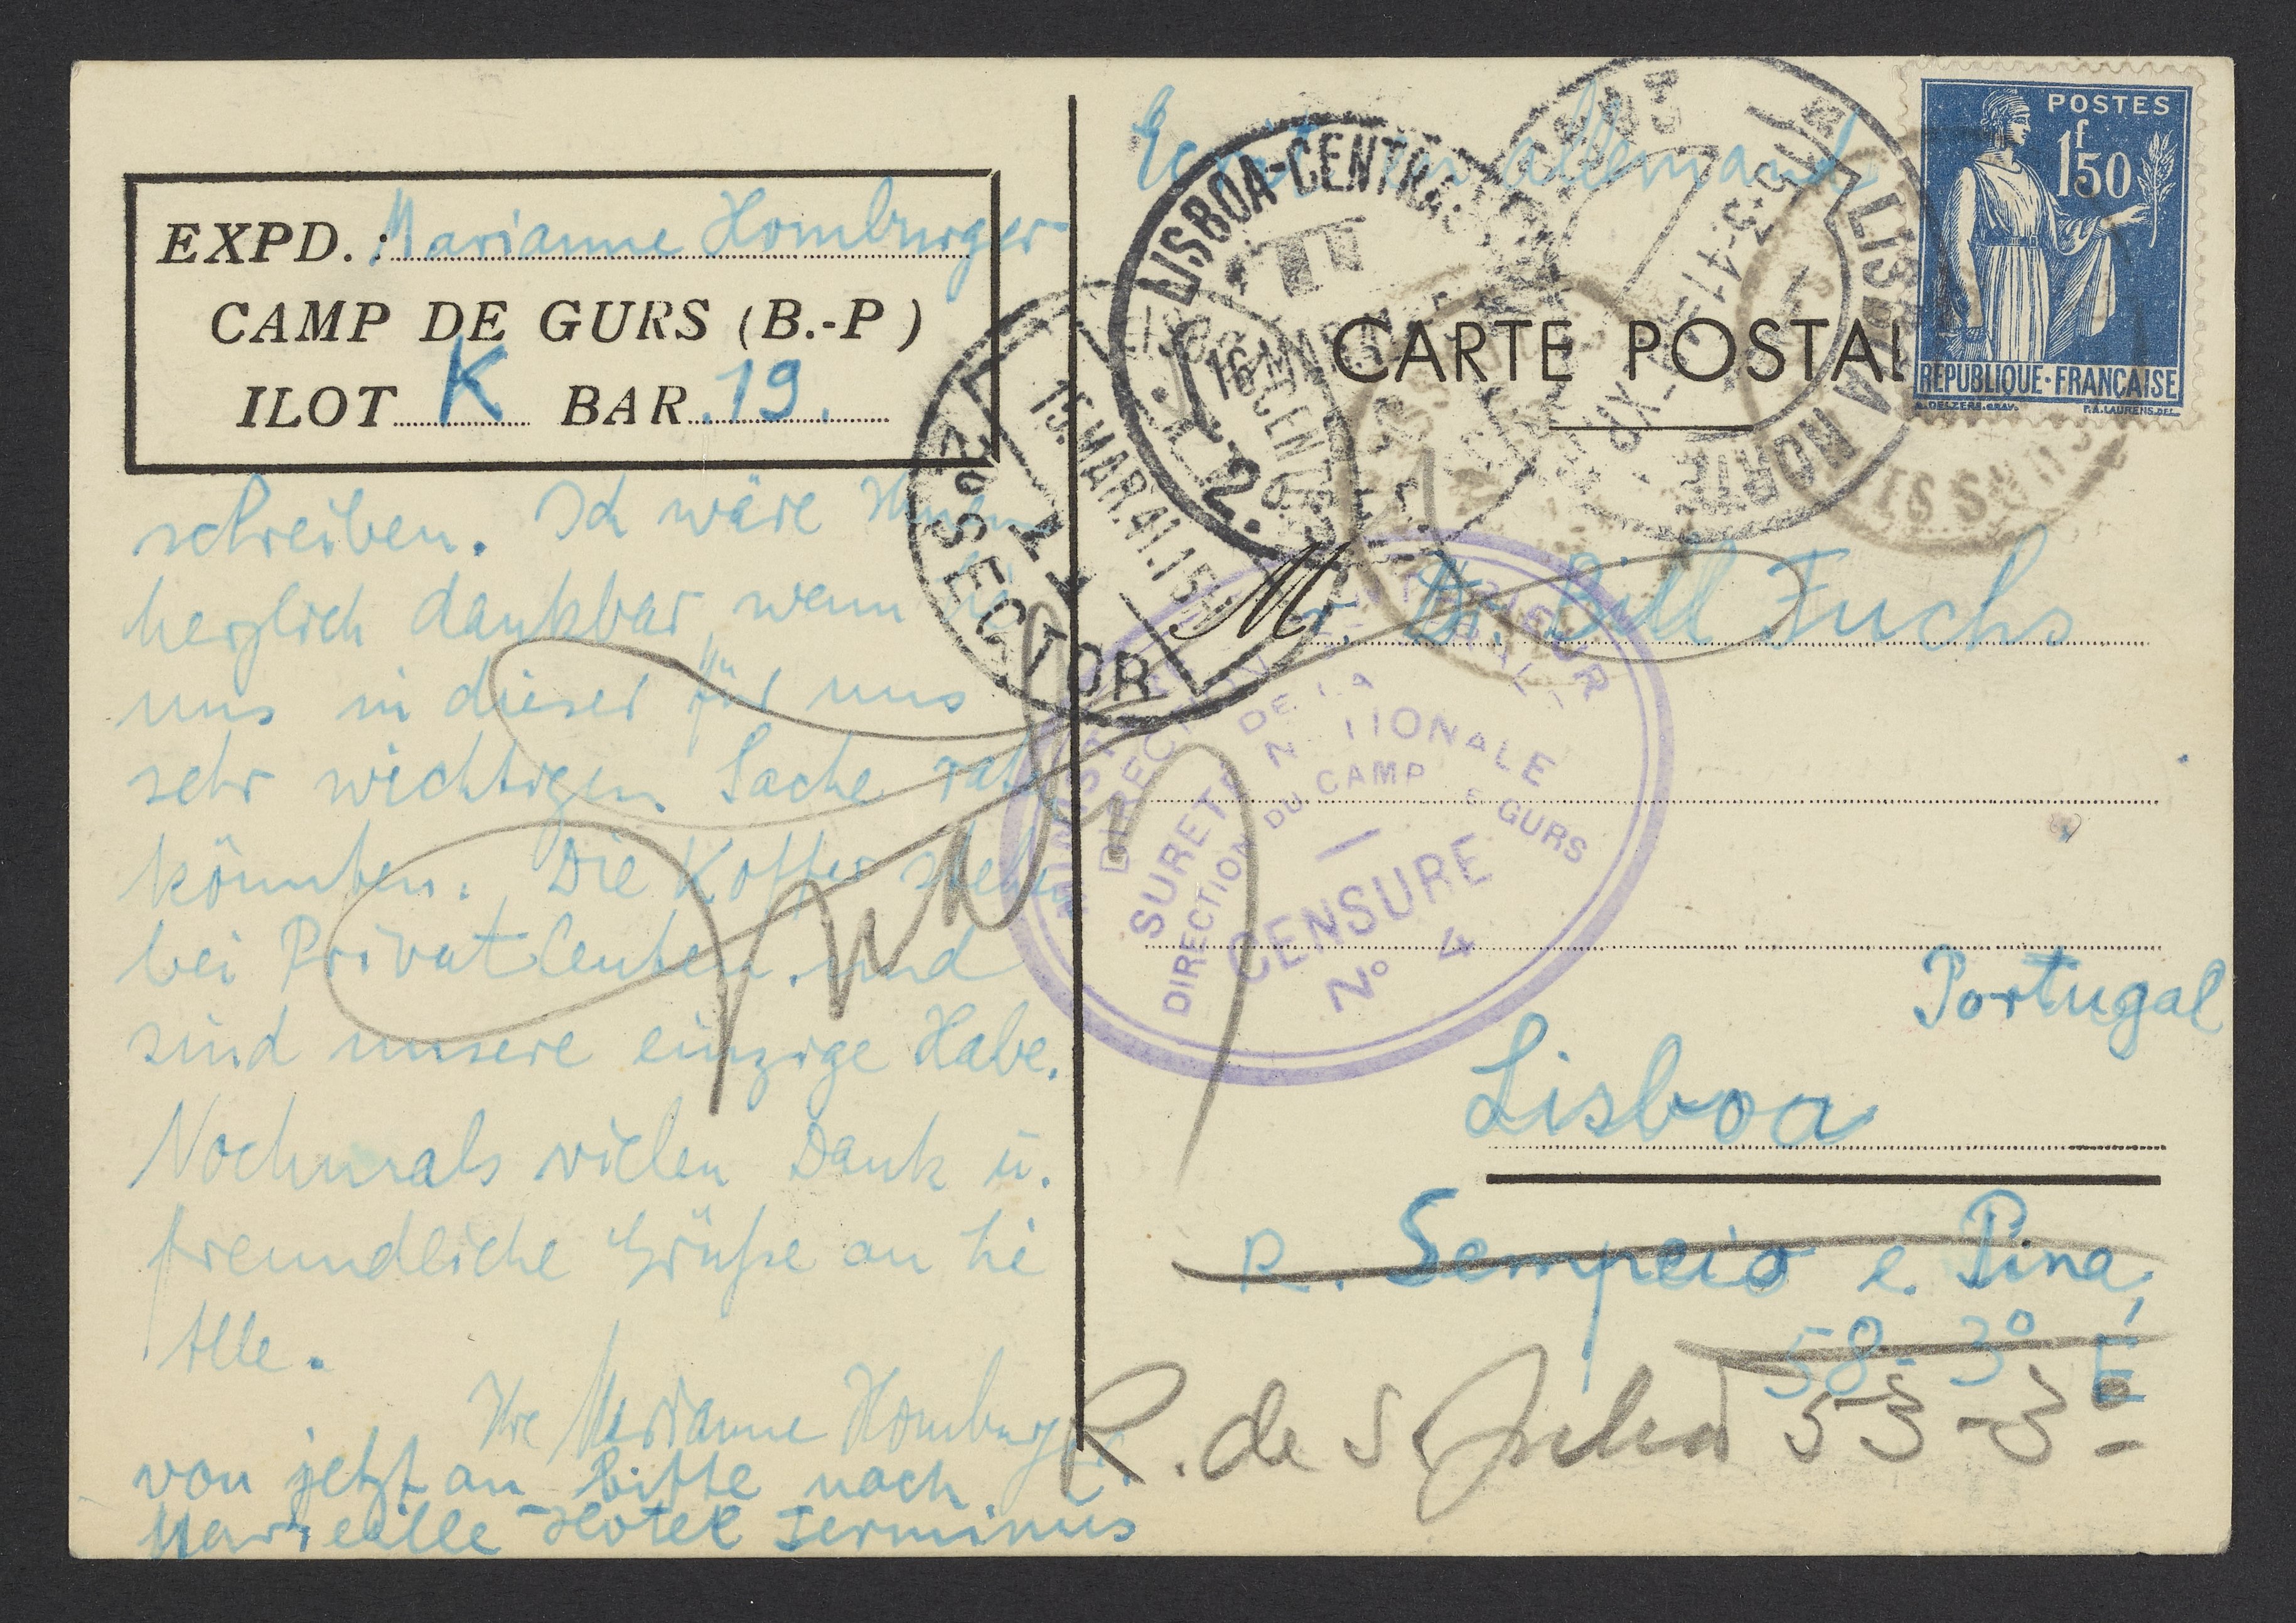 EXPD. : Marianne Homburger
CAMP DE GURS (B.-P)
ILOT K BAR. 19.
schreiben. Ich wäre Ihnen
herzlich dankbar, wenn Sie
uns in dieser für uns
sehr wichtigen Sache raten
könnten. Die Koffer stehen
bei Privatleuten und
sind unsere einzige Habe.
Nochmals vielen Dank u.
freundliche Grüße an Sie
Alle.
Ihre Marianne Homburger.
von jetzt an bitte nach
Marseille Hotel Terminus
Ecrit en allemand
CARTE POSTAL
POSTES
1f50
REPUBLIQUE·FRANÇAISE
A.DELZERS.GRAV. P.A.LAURENS.DEL.
LISBOA-CENTRAL
16 MAR
2.
LISBOA CENTRAL
15.MAR.41.15
2º SECTOR
LISBOA NORTE
15-3-41
GURS
DIRECTION
DE LA
SURETE NATIONALE
DIRECTION DU CAMP DE GURS
CENSURE
Nº 4
Mr. Dr. Bill Fuchs
Portugal
Lisboa
R. Sempeio e. Pina,
58- 3º E
R. de S. Julião 53-3º